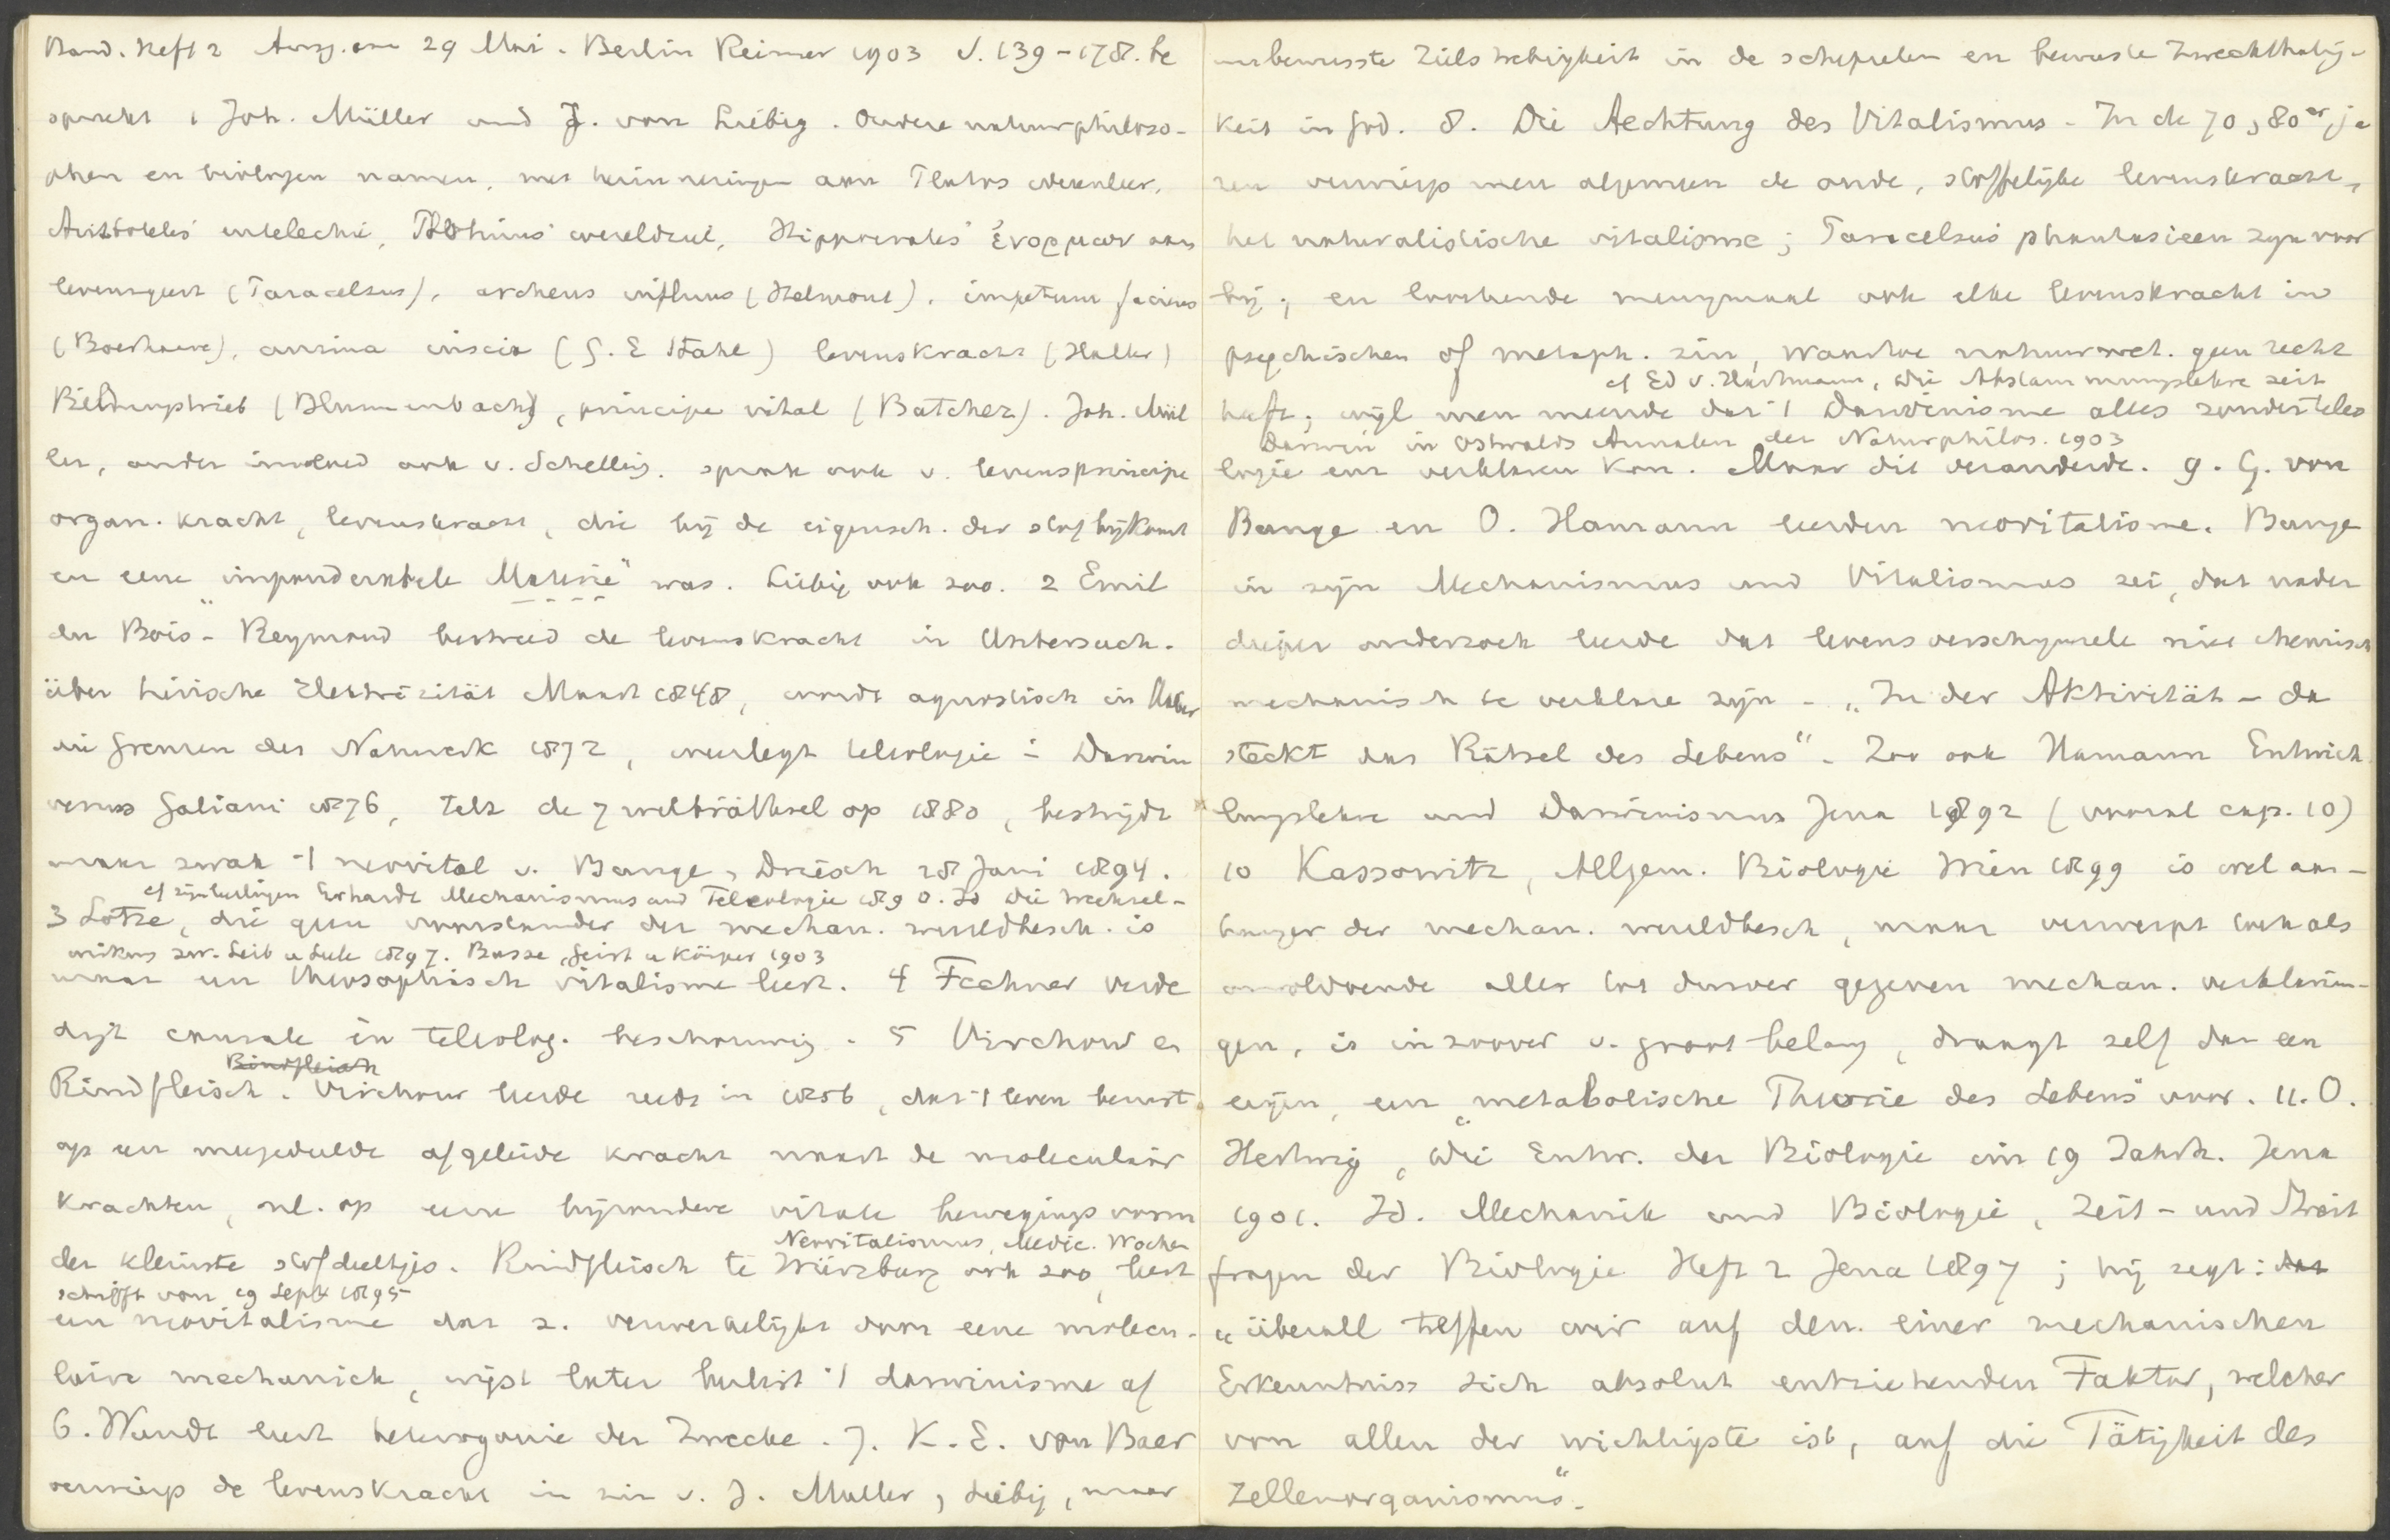 Band. Heft 2 Ausg. am 29 Mai. Berlin Reimer 1903 S. 139-178. be
spreekt 1 Joh. Müller und J. von Liebig. Oudere natuurphiloso-
phen en biologen namen, met herinneringen aan Plato's wereldzeel,
Aristoteles' entelechie, Plotinus' wereldziel, Hippocrates' ἐνορμων aan
levensgeest (Paracelsus), archeus influus (Helmont), impetum faciens
(Boerhaave), anima inscia (G. E Stahl) levenskracht (Haller)
Bildungstrieb (Blumenbach), principe vital (Batchez). Joh. Mül
ler, onder invloed ook v. Schelling. sprak ook v. levensprincipe
organ. kracht, levenskracht, die bij de eigensch. der stof bijkomt
en eene "imponderabele Materie" was. Liebig ook zoo. 2 Emil
du Bois-Reymond bestreed de levenskracht in Untersuch.
über tierische Elektrizität Maart 1848, wordt agnostisch in Ueber
die Grenzen des Naturerk 1872, weerlegt teleologie in Darwin
versus Galiani 1876, telt de 7 welträthsel op 1880, bestrijdt
maar zwak 't neovital v. Bunge, Driesch 28 Juni 1894.
cf Erhardt Mechanismus und Teleologie 1890. Id Die Wechsel-
3 Lotze, die geen voorstander der mechan. wereldbesch. is
wirkung zw. Leib u Seele 1897. Busse, Geist u Körper 1903
maar een theosophisch vitalisme leert. 4 Fechner verde
digt causale én teleolog. beschouwing. 5 Virchow en
Rindfleisch. Virchow leerde reeds in 1856, dat 't leven berust
op een meegedeelde afgeleide kracht naast de moleculair
krachten, nl. op eene bijzondere vitale bewegingsvorm
der kleinste stofdeeltjes. Rindfleisch te Würzburg ook zoo, leert
Neovitalismus, Medic. Wochen
schrift von 19 Sept 1895
een neovitalisme dat z. verwerkelijkt door eene molecu-
laire mechanick, wijst later beslist 't darwinisme af
6. Wundt leert heterogonie der Zwecke. 7. K. E. von Baer
verwierp de levenskracht in zin v. J. Muller, Liebig, maar
unbewusste Zielstrebigkeit in de schepselen en bewuste Zweckthätig-
keit in God. 8. Die Aechtung des Vitalismus - In de 70, 80er ja
ren verwierp men algemeen de oude, stoffelijke levenskracht,
het naturalistische vitalisme; Paracelsus' phantasieen zijn voor
bij; en loochende menigmaal ook elke levenskracht in
psychischen of metaph. zin, waartoe natuurwet. geen recht
cf Ed v. Hartmann, Die Abstammungslehre seit
heeft; wijl men meende dat 't Darwinisme alles zonder teleo
Darwin in Ostwalds Annalen der Naturphilos. 1903
logie verklaren kon. Maar dit veranderde. 9. G. von
Bunge en O. Hamann leerden neovitalisme. Bunge
in zijn Mechanismus und Vitalismus zei, dat nader
dieper onderzoek leerde dat levensverschijnsele niet chemisch
mechanisch te verklare zijn - „In der Aktivität - da
steckt das Rätsel des Lebens“ - Zoo ook Hamann Entwick
lungslehre und Darwinismus Jena 1892 (vooral cap. 10)
10 Kassowitz, Allgem. Biologie Wien 1899 is wel aan-
hanger der mechan. wereldbesch, maar verwerpt toch als
onvoldoende alles tot dusver gegeven mechan. verklarin-
gen, is in zoover v. groot belang, draagt zelf dan een
eigen, een "metabolische Theorie des Lebens" voor. 11. O.
Hertwig, Die Entw. der Biologie im 19 Jahrh. Jena
1901. Id. Mechanik und Biologie, Zeit- und Streit
fragen der Biologie Heft 2 Jena 1897; hij zegt: dat
„überall treffen wir auf den einer mechanischen
Erkenntniss sich absolut entziehenden Faktor, welcher
von allen der wichtigste ist, auf die Tätigkeit des
Zellenorganismus“.